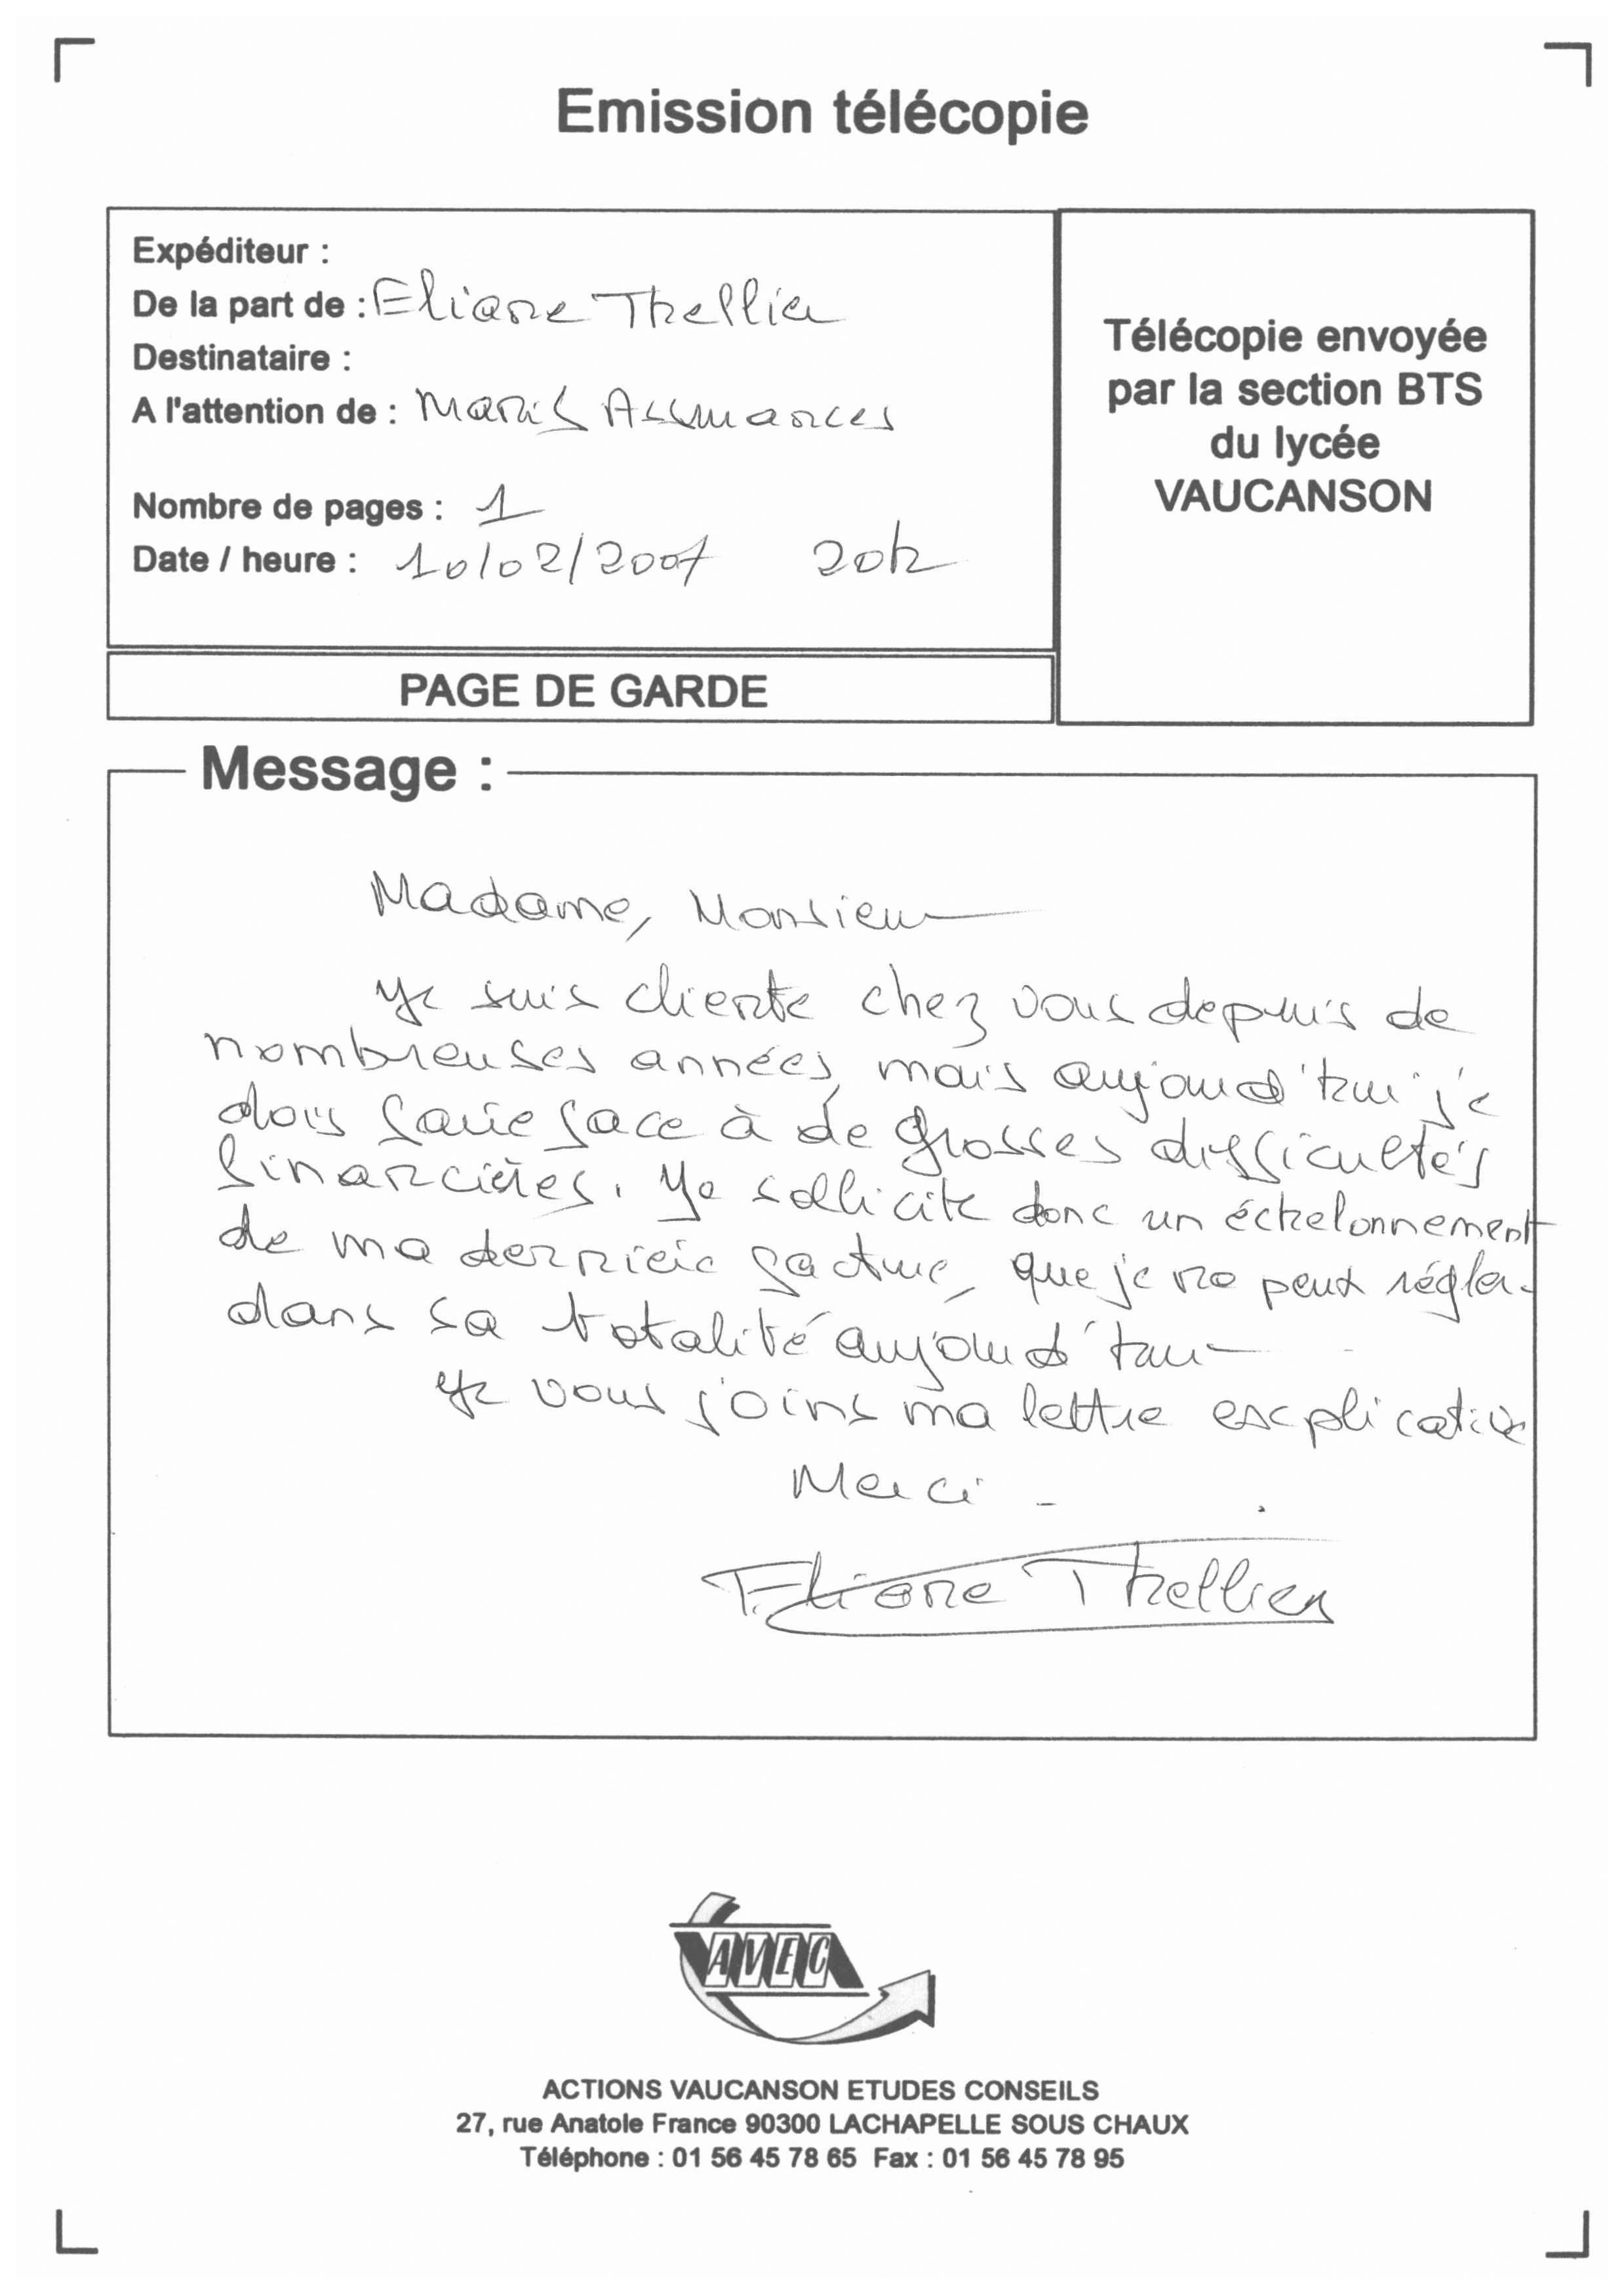 Emission télécopie
Expéditeur :
De la part de : Eliane Thellier
Destinataire :
A l'attention de : Assurances
Nombre de pages : 1
Date / heure : 10/02/2007 20h
Télécopie envoyée
par la section BTS
du lycée
VAUCANSON
PAGE DE GARDE
Message :
Madame, Monsieur
Je suis cliente chez vous depuis de
nombreuses années, mais aujourd'hui je
dois faire face à de grosses difficultés
financières. Je sollicite donc un échelonnement
de ma dernière facture, que je ne peux régler
dans sa totalité aujourd'hui
Je vous joins ma lettre explicative
Merci -
Eliane Thellier
AVEC
ACTIONS VAUCANSON ETUDES CONSEILS
27, rue Anatole France 90300 LACHAPELLE SOUS CHAUX
Téléphone : 01 56 45 78 65 Fax : 01 56 45 78 95